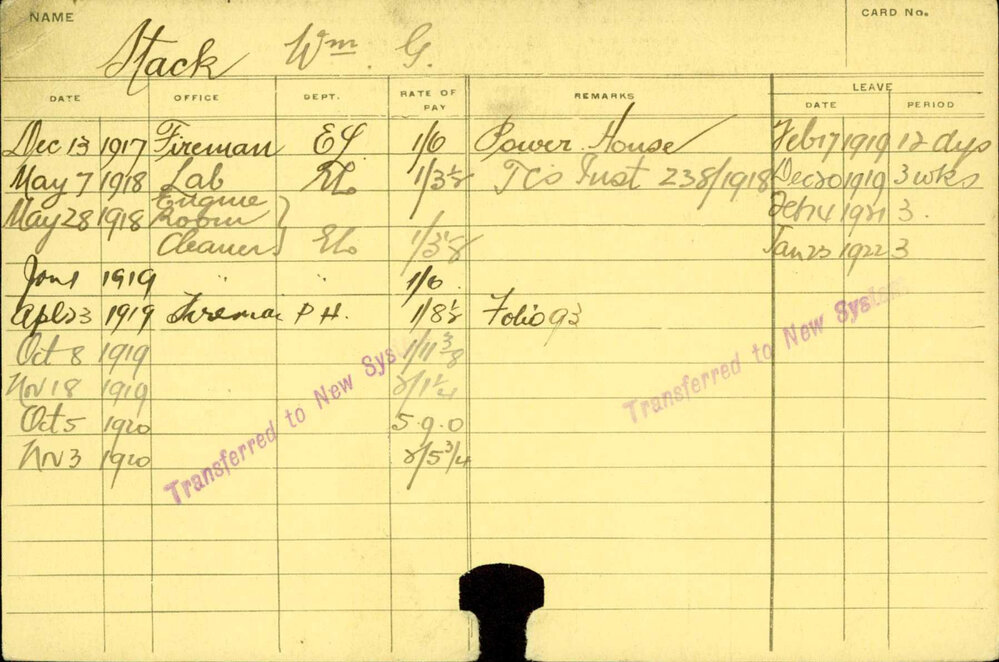 NAME
CARD No.
Stack Wm. G.
DATE OFFICE DEPT. RATE OF PAY REMARKS LEAVE
DATE PERIOD
Dec 13 1917 Fireman EL 1/6 Power House Feb 17 1919 12 dys
May 7 1918 Lab EL 1/3½ TCs Inst 238/1918 Dec 20 1919 3 wks
May 28 1918 Engine Room Feb 14 1921 3.
Cleaner } EL 1/3 Jan 23 1922 3
Jan 1 1919 " " 1/6.
Apl 23 1919 Fireman P H. 1/8½ Folio 93
Oct 8 1919 1/11 3/8
Nov 18 1919 2/1¼
Oct 5 1920 5.9.0
Nov 3 1920 2/5 3/4
Transferred to New System
Transferred to New System